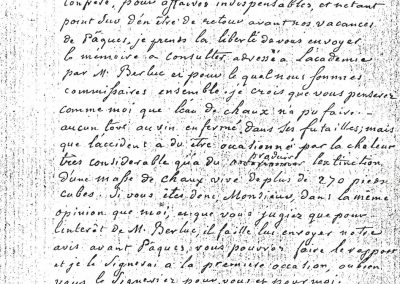 confrere, pour affaires indispensables, et n'etant
point sur d'en être de retour avant nos vacances
de Pâques, je prends la liberté de vous envoyer
le memoire a consulter, adressé a L'academie
par M. Berluc et pour le quel nous sommes
commissaires ensemble. je crois que vous penserez
comme moi que l'eau de chaux n'a pu faire
aucun tort au vin enfermé dans ses futailles; mais
que l'accident a du être occasionné par la chaleur
très considerable qu'a du produire l'extinction
d'une masse de chaux vive de plus de 270 pieds
cubes. Si vous êtes donc, Monsieur, dans la même
opinion que moi, et que vous jugiez que pour
l'interêt de M. Berluc, il faille lui envoyer notre
avis avant Pâques, vous pouvez faire le rapport
et je le signerai a la premiere occasion, ou bien
vous le signeriez pour vous et pour moi.